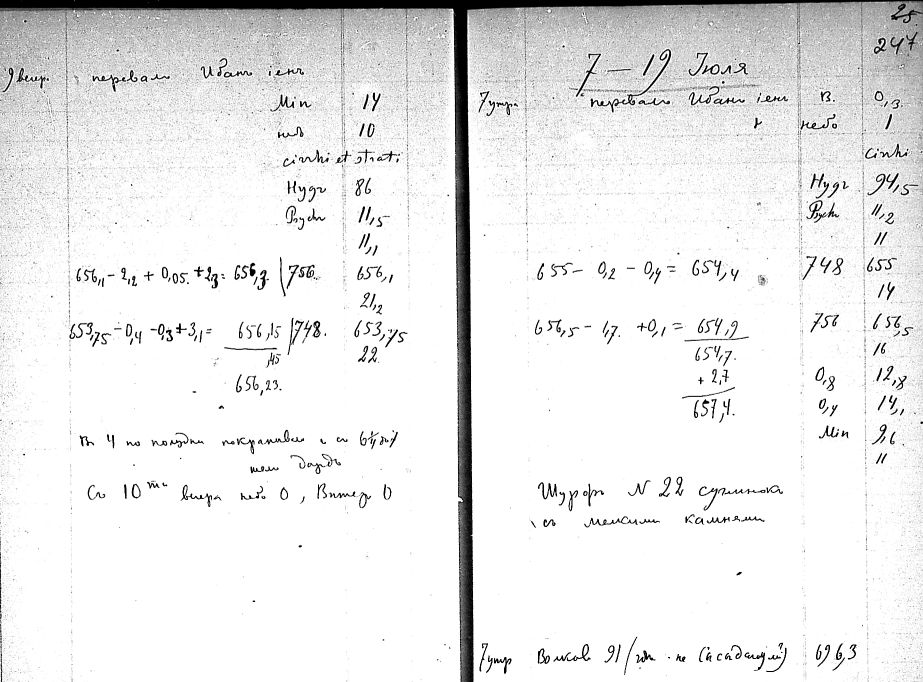 9 вечер. перевалъ
Min 14
10
cirrhi et strati
Hygr 86
Psych 11,5
11,1
656,1 - 2,2 + 0,05 + 2,3 = 656,3 | 756. 656,1
21,2
653,75 - 0,4 - 0,3 + 3,1 = 656,15 | 748. 653,75
,45 22.
656,23.
Въ 4 по полудни и съ
шелъ дождь
Съ 10 вечера небо 0, Вѣтеръ 0
25
247
7 – 19 Іюля
7 утра перевалъ В. 0,3
небо 1
cirrhi
Hygr 94,5
Psych 11,2
11
655 - 0,2 - 0,4 = 654,4 748 655
14
656,5 - 1,7. + 0,1 = 654,9 756 656,5
654,7. 16
+ 2,7 0,8 12,8
657,4. 0,4 14,1
Min 9,6
11
Шурфъ N 22 суглинокъ
съ мелкими камнями
7 утр Волковъ 91 696,3